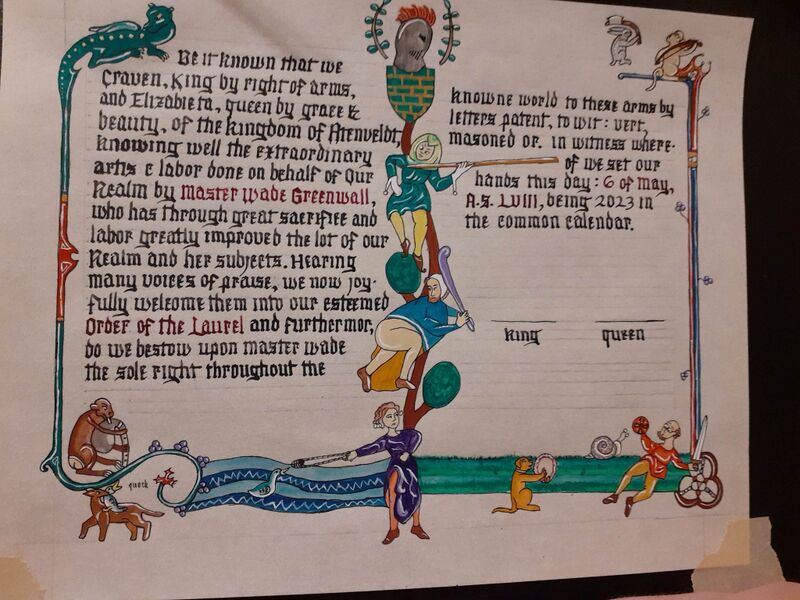 Be it known that we
Craven, King by right of arms,
and Elizabieta, queen by grace &
beauty, of the kingdom of Atenveldt,
knowing well the extraordinary
arts & labor done on behalf of Our
Realm by Master Wade Greenwall,
who has through great sacrifice and
labor greatly improved the lot of our
Realm and her subjects. Hearing
many voices of praise, we now joy-
fully welcome them into our esteemed
Order of the Laurel and furthermor,
do we bestow upon master wade
the sole right throughout the
knowne world to these arms by
letters patent, to wit: vert,
masoned or. in witness where-
of we set our
hands this day: 6 of May,
A.S. LVIII, being 2023 in
the common calendar.
king queen
quack